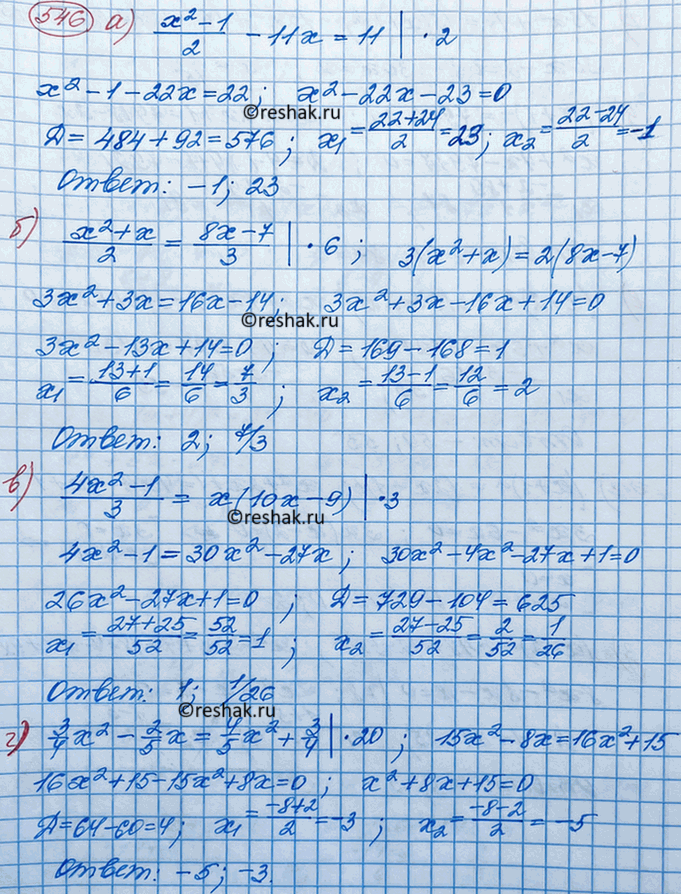 546 а) (x² − 1)/2 − 11x = 11 | · 2
x² − 1 − 22x = 22; x² − 22x − 23 = 0
©reshak.ru
D = 484 + 92 = 576; x₁ = (22+24)/2 = 23; x₂ = (22−24)/2 = −1
Ответ: −1; 23
б) (x² + x)/2 = (8x − 7)/3 | · 6; 3(x² + x) = 2(8x − 7)
3x² + 3x = 16x − 14; 3x² + 3x − 16x + 14 = 0
©reshak.ru
3x² − 13x + 14 = 0; D = 169 − 168 = 1
x₁ = (13+1)/6 = 14/6 = 7/3; x₂ = (13−1)/6 = 12/6 = 2
Ответ: 2; 7/3
в) (4x² − 1)/3 = x(10x − 9) | · 3
©reshak.ru
4x² − 1 = 30x² − 27x; 30x² − 4x² − 27x + 1 = 0
26x² − 27x + 1 = 0; D = 729 − 104 = 625
x₁ = (27+25)/52 = 52/52 = 1; x₂ = (27−25)/52 = 2/52 = 1/26
Ответ: 1; 1/26
©reshak.ru
г) 3/4x² − 2/5x = 4/5x² + 3/4 | · 20; 15x² − 8x = 16x² + 15
16x² + 15 − 15x² + 8x = 0; x² + 8x + 15 = 0
D = 64 − 60 = 4; x₁ = (−8+2)/2 = −3; x₂ = (−8−2)/2 = −5
Ответ: −5; −3.